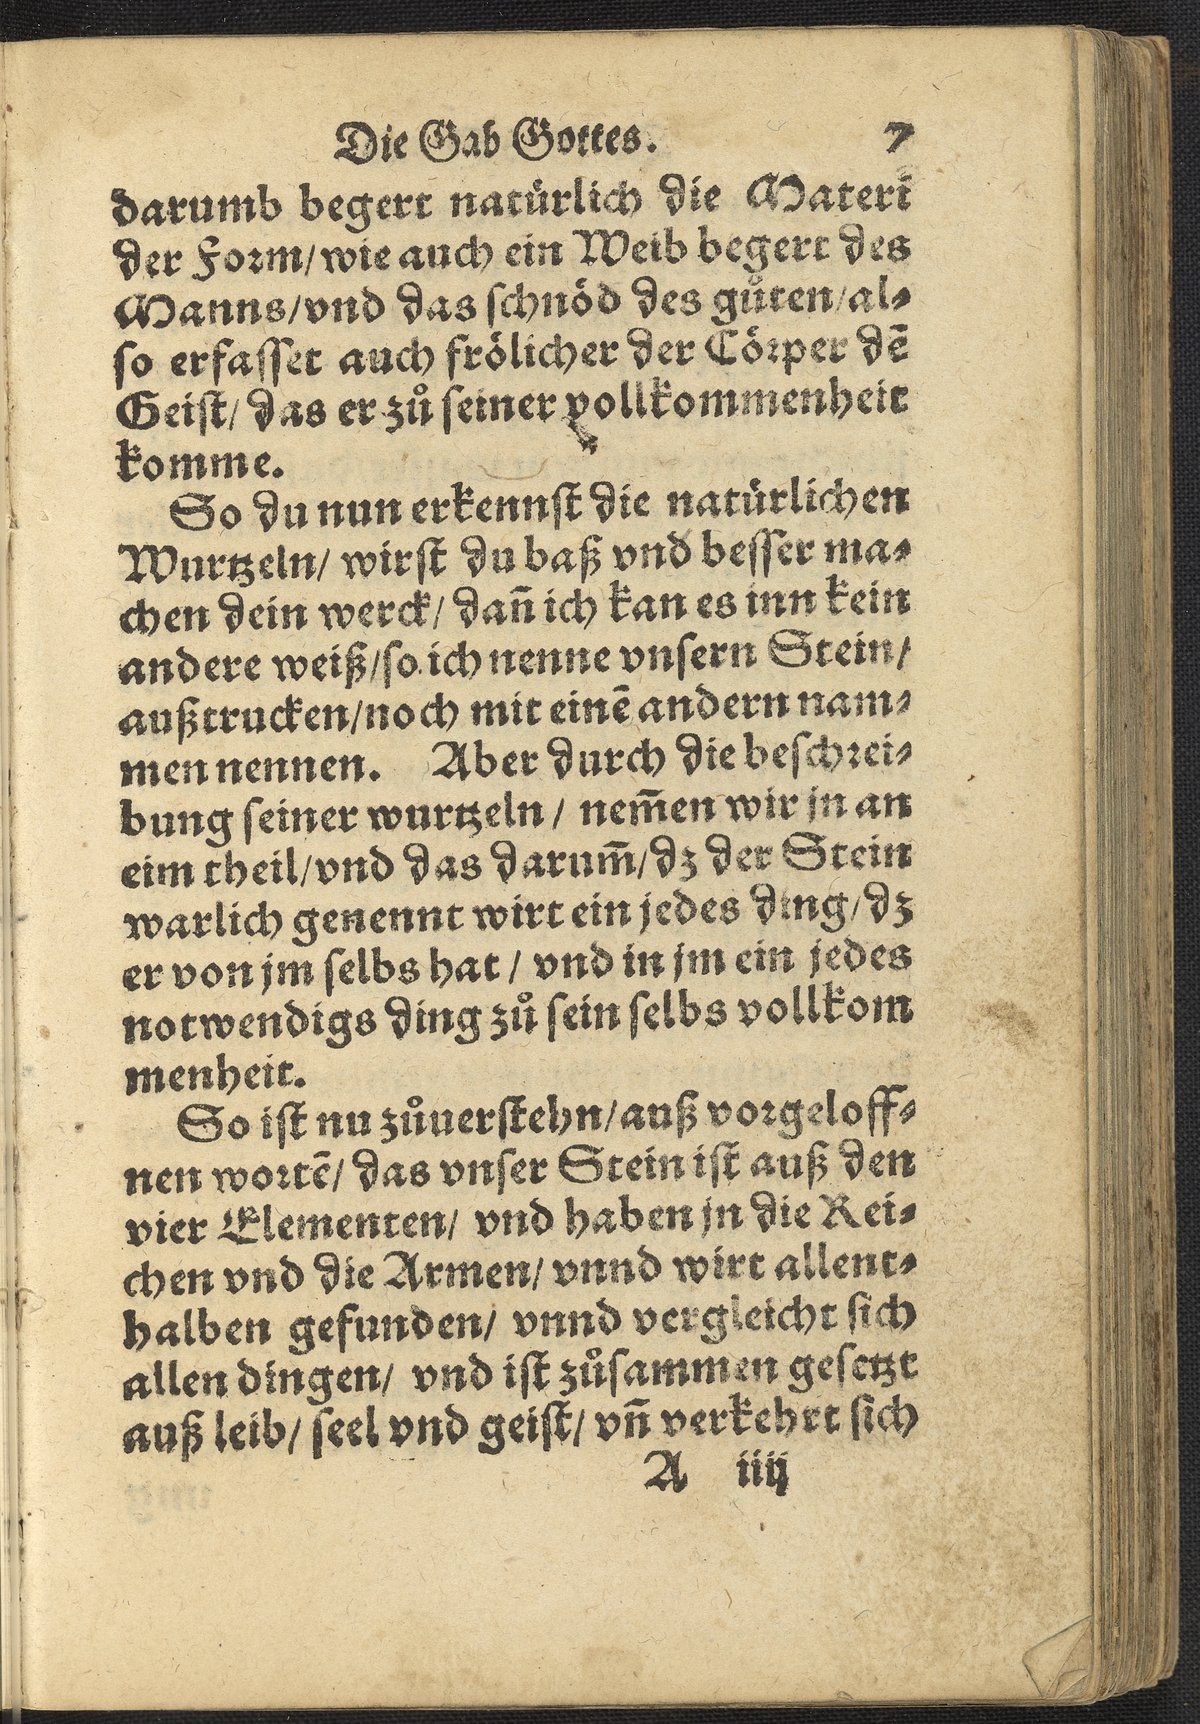 Die Gab Gottes. 7
darumb begert natürlich die Materi
der Form/wie auch ein Weib begert des
Manns/vnd das schnöd des gůten/al⸗
so erfasset auch frölicher der Cörper dē
Geist/ das er zů seiner vollkommenheit
komme.
So du nun erkennst die natürlichen
Wurtzeln/ wirst du baß vnd besser ma⸗
chen dein werck/ dañ ich kan es inn kein
andere weiß/so ich nenne vnsern Stein/
außtrucken/noch mit einē andern nam⸗
men nennen. Aber durch die beschrei⸗
bung seiner wurtzeln/ nem̃en wir jn an
eim theil/vnd das darum̃/dz der Stein
warlich genennt wirt ein jedes ding/dz
er von jm selbs hat/ vnd in jm ein jedes
notwendigs ding zů sein selbs vollkom
menheit.
So ist nu zůuerstehn/auß vorgeloff⸗
nen wortē/ das vnser Stein ist auß den
vier Elementen/ vnd haben jn die Rei⸗
chen vnd die Armen/ vnnd wirt allent⸗
halben gefunden/ vnnd vergleicht sich
allen dingen/ vnd ist zůsammen gesetzt
auß leib/ seel vnd geist/ vñ verkehrt sich
A iiij